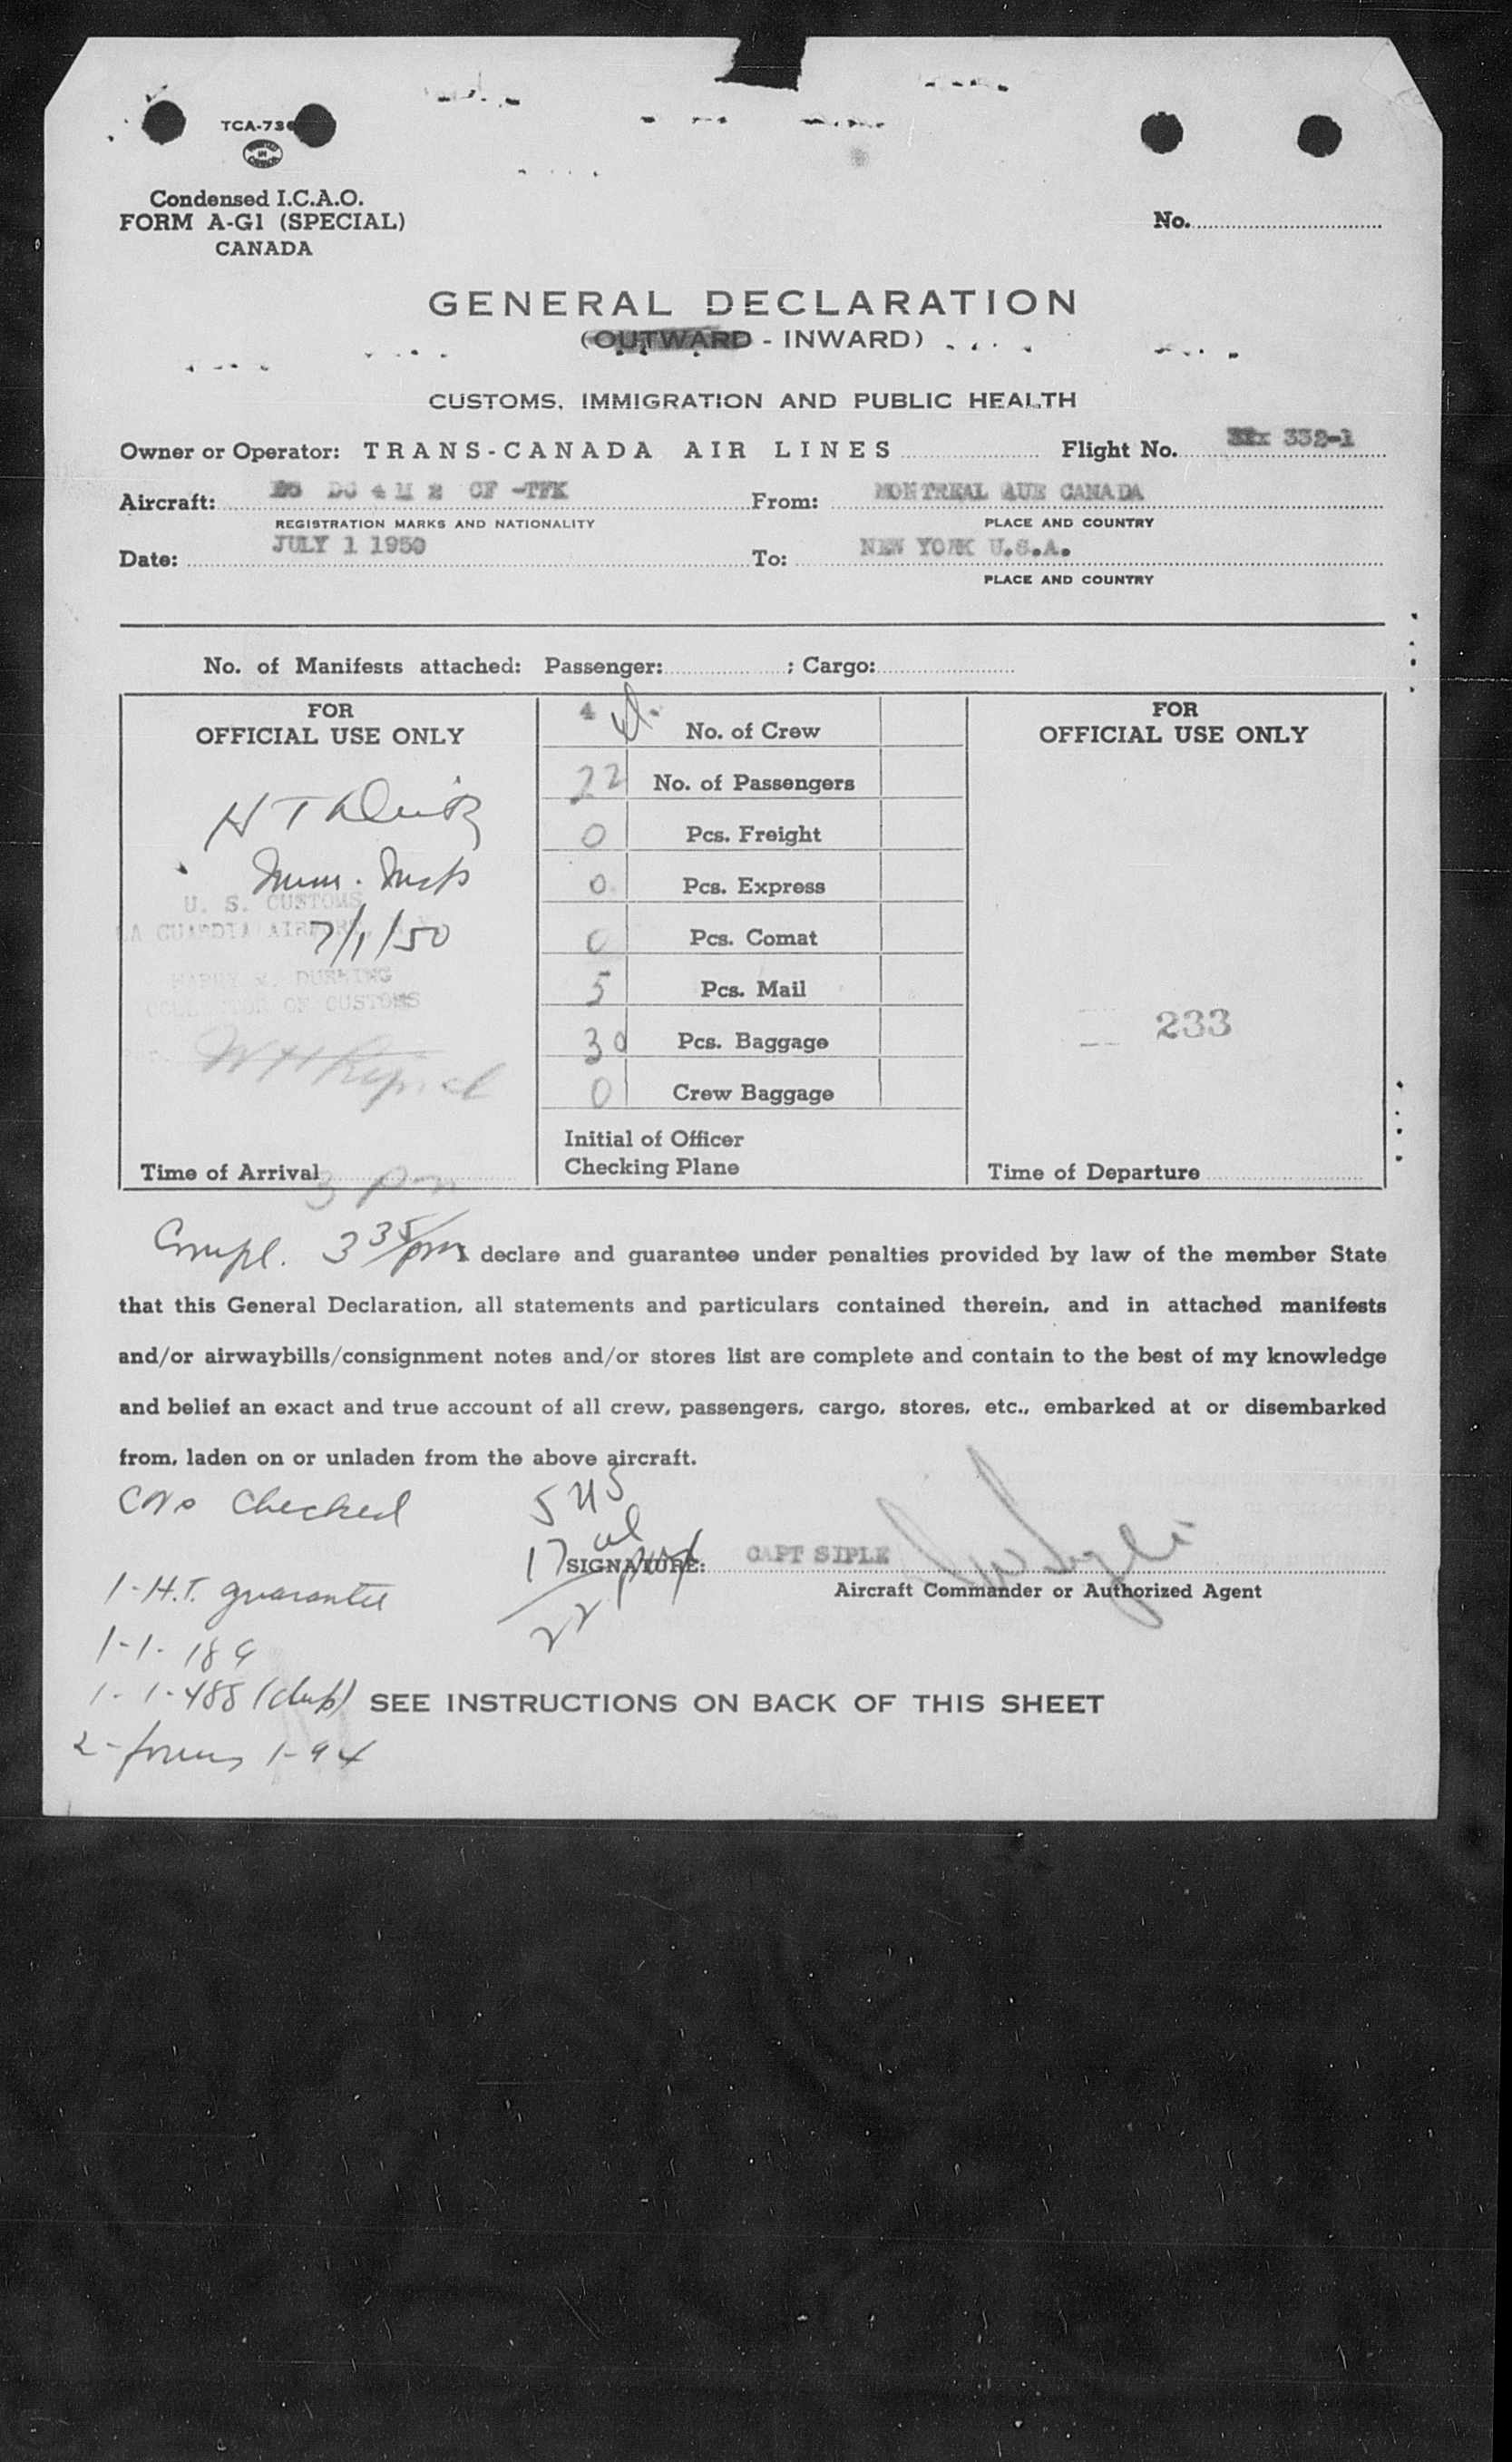 TCA-73
Condensed I.C.A.O.
FORM A-G1 (SPECIAL)
CANADA
No.
GENERAL DECLARATION
(OUTWARD - INWARD)
CUSTOMS, IMMIGRATION AND PUBLIC HEALTH
Owner or Operator: TRANS-CANADA AIR LINES Flight No. 332-1
Aircraft: DC 4 M 2 CF -TFK From: MONTREAL QUE CANADA
REGISTRATION MARKS AND NATIONALITY PLACE AND COUNTRY
Date: JULY 1 1950 To: NEW YORK U.S.A.
PLACE AND COUNTRY
No. of Manifests attached: Passenger: ; Cargo:
FOR
OFFICIAL USE ONLY
H T
U. S. CUSTOMS
LA GUARDIA AIRPORT
7/1/50
HARRY M. DURNING
COLLECTOR OF CUSTOMS
Time of Arrival 3 pm
4 No. of Crew
22 No. of Passengers
0 Pcs. Freight
0 Pcs. Express
0 Pcs. Comat
5 Pcs. Mail
30 Pcs. Baggage
0 Crew Baggage
Initial of Officer
Checking Plane
FOR
OFFICIAL USE ONLY
233
Time of Departure
Compl. 3 35/pm I declare and guarantee under penalties provided by law of the member State
that this General Declaration, all statements and particulars contained therein, and in attached manifests
and/or airwaybills/consignment notes and/or stores list are complete and contain to the best of my knowledge
and belief an exact and true account of all crew, passengers, cargo, stores, etc., embarked at or disembarked
from, laden on or unladen from the above aircraft.
Checked 5 US
17 al
SIGNATURE: CAPT SIPLE
Aircraft Commander or Authorized Agent
22
1-H.T. guarantee
1-I-189
1-I-488 (dup) SEE INSTRUCTIONS ON BACK OF THIS SHEET
2-forms I-94